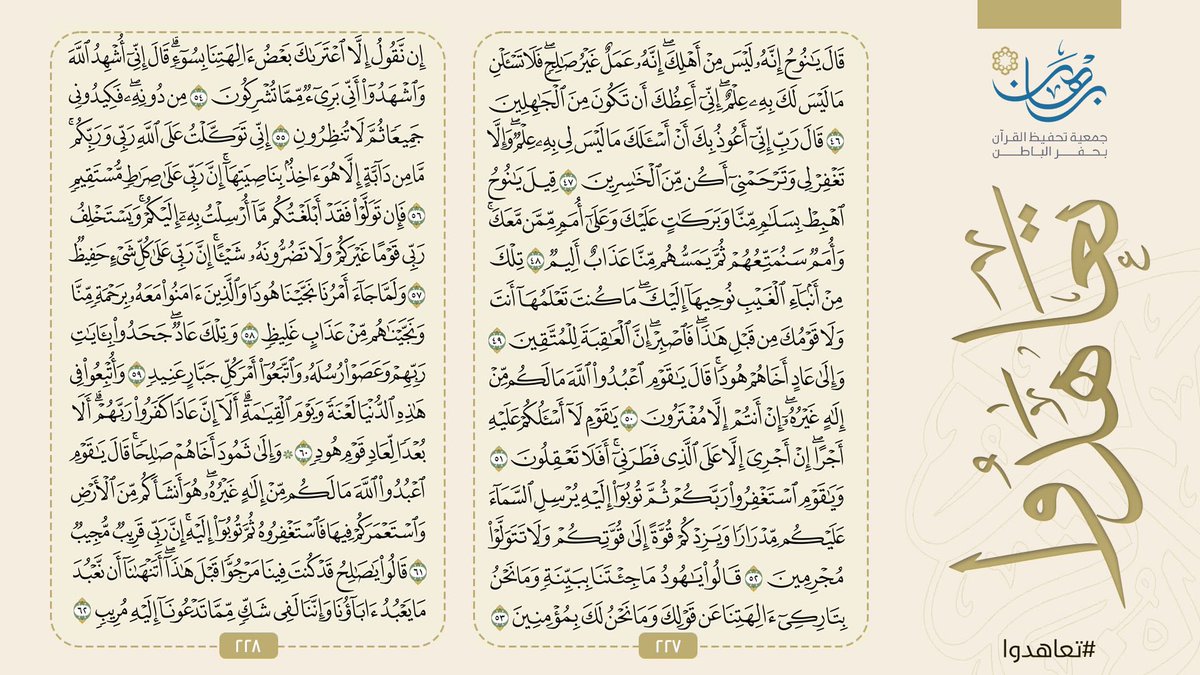 برهان
جمعية تحفيظ القرآن
بحفر الباطن
تعاهدوا
#تعاهدوا
قَالَ يَٰنُوحُ إِنَّهُۥ لَيْسَ مِنْ أَهْلِكَۖ إِنَّهُۥ عَمَلٌ غَيْرُ صَٰلِحٖۖ فَلَا تَسْـَٔلْنِ
مَا لَيْسَ لَكَ بِهِۦ عِلْمٌۖ إِنِّيٓ أَعِظُكَ أَن تَكُونَ مِنَ ٱلْجَٰهِلِينَ
٤٦ قَالَ رَبِّ إِنِّيٓ أَعُوذُ بِكَ أَنْ أَسْـَٔلَكَ مَا لَيْسَ لِي بِهِۦ عِلْمٞۖ وَإِلَّا
تَغْفِرْ لِي وَتَرْحَمْنِيٓ أَكُن مِّنَ ٱلْخَٰسِرِينَ ٤٧ قِيلَ يَٰنُوحُ
ٱهْبِطْ بِسَلَٰمٖ مِّنَّا وَبَرَكَٰتٍ عَلَيْكَ وَعَلَىٰٓ أُمَمٖ مِّمَّن مَّعَكَۚ
وَأُمَمٞ سَنُمَتِّعُهُمْ ثُمَّ يَمَسُّهُم مِّنَّا عَذَابٌ أَلِيمٞ ٤٨ تِلْكَ
مِنْ أَنۢبَآءِ ٱلْغَيْبِ نُوحِيهَآ إِلَيْكَۖ مَا كُنتَ تَعْلَمُهَآ أَنتَ
وَلَا قَوْمُكَ مِن قَبْلِ هَٰذَاۖ فَٱصْبِرْۖ إِنَّ ٱلْعَٰقِبَةَ لِلْمُتَّقِينَ ٤٩
وَإِلَىٰ عَادٍ أَخَاهُمْ هُودٗاۚ قَالَ يَٰقَوْمِ ٱعْبُدُوا۟ ٱللَّهَ مَا لَكُم مِّنْ
إِلَٰهٍ غَيْرُهُۥٓۖ إِنْ أَنتُمْ إِلَّا مُفْتَرُونَ ٥٠ يَٰقَوْمِ لَآ أَسْـَٔلُكُمْ عَلَيْهِ
أَجْرًاۖ إِنْ أَجْرِيَ إِلَّا عَلَى ٱلَّذِي فَطَرَنِيٓۚ أَفَلَا تَعْقِلُونَ ٥١
وَيَٰقَوْمِ ٱسْتَغْفِرُوا۟ رَبَّكُمْ ثُمَّ تُوبُوٓا۟ إِلَيْهِ يُرْسِلِ ٱلسَّمَآءَ
عَلَيْكُم مِّدْرَارٗا وَيَزِدْكُمْ قُوَّةً إِلَىٰ قُوَّتِكُمْ وَلَا تَتَوَلَّوْا۟
مُجْرِمِينَ ٥٢ قَالُوا۟ يَٰهُودُ مَا جِئْتَنَا بِبَيِّنَةٖ وَمَا نَحْنُ
بِتَارِكِيٓ ءَالِهَتِنَا عَن قَوْلِكَ وَمَا نَحْنُ لَكَ بِمُؤْمِنِينَ ٥٣
٢٢٧
إِن نَّقُولُ إِلَّا ٱعْتَرَىٰكَ بَعْضُ ءَالِهَتِنَا بِسُوٓءٖۗ قَالَ إِنِّيٓ أُشْهِدُ ٱللَّهَ
وَٱشْهَدُوٓا۟ أَنِّي بَرِيٓءٞ مِّمَّا تُشْرِكُونَ ٥٤ مِن دُونِهِۦۖ فَكِيدُونِي
جَمِيعٗا ثُمَّ لَا تُنظِرُونِ ٥٥ إِنِّي تَوَكَّلْتُ عَلَى ٱللَّهِ رَبِّي وَرَبِّكُمۚ
مَّا مِن دَآبَّةٍ إِلَّا هُوَ ءَاخِذُۢ بِنَاصِيَتِهَآۚ إِنَّ رَبِّي عَلَىٰ صِرَٰطٖ مُّسْتَقِيمٖ
٥٦ فَإِن تَوَلَّوْا۟ فَقَدْ أَبْلَغْتُكُم مَّآ أُرْسِلْتُ بِهِۦٓ إِلَيْكُمْۚ وَيَسْتَخْلِفُ
رَبِّي قَوْمًا غَيْرَكُمْ وَلَا تَضُرُّونَهُۥ شَيْـًٔاۚ إِنَّ رَبِّي عَلَىٰ كُلِّ شَيْءٍ حَفِيظٞ
٥٧ وَلَمَّا جَآءَ أَمْرُنَا نَجَّيْنَا هُودٗا وَٱلَّذِينَ ءَامَنُوا۟ مَعَهُۥ بِرَحْمَةٖ مِّنَّا
وَنَجَّيْنَٰهُم مِّنْ عَذَابٍ غَلِيظٖ ٥٨ وَتِلْكَ عَادٞۖ جَحَدُوا۟ بِـَٔايَٰتِ
رَبِّهِمْ وَعَصَوْا۟ رُسُلَهُۥ وَٱتَّبَعُوٓا۟ أَمْرَ كُلِّ جَبَّارٍ عَنِيدٖ ٥٩ وَأُتْبِعُوا۟ فِي
هَٰذِهِ ٱلدُّنْيَا لَعْنَةٗ وَيَوْمَ ٱلْقِيَٰمَةِۗ أَلَآ إِنَّ عَادٗا كَفَرُوا۟ رَبَّهُمْۗ أَلَا
بُعْدٗا لِّعَادٖ قَوْمِ هُودٖ ٦٠ ۞ وَإِلَىٰ ثَمُودَ أَخَاهُمْ صَٰلِحٗاۚ قَالَ يَٰقَوْمِ
ٱعْبُدُوا۟ ٱللَّهَ مَا لَكُم مِّنْ إِلَٰهٍ غَيْرُهُۥۖ هُوَ أَنشَأَكُم مِّنَ ٱلْأَرْضِ
وَٱسْتَعْمَرَكُمْ فِيهَا فَٱسْتَغْفِرُوهُ ثُمَّ تُوبُوٓا۟ إِلَيْهِۚ إِنَّ رَبِّي قَرِيبٞ مُّجِيبٞ
٦١ قَالُوا۟ يَٰصَٰلِحُ قَدْ كُنتَ فِينَا مَرْجُوّٗا قَبْلَ هَٰذَآۖ أَتَنْهَىٰنَآ أَن نَّعْبُدَ
مَا يَعْبُدُ ءَابَآؤُنَا وَإِنَّنَا لَفِي شَكّٖ مِّمَّا تَدْعُونَآ إِلَيْهِ مُرِيبٖ ٦٢
٢٢٨